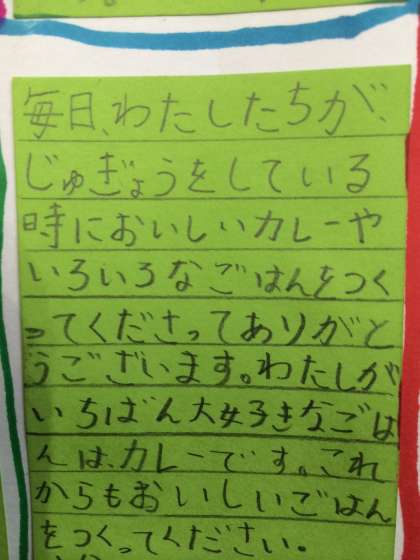 毎日、わたしたちが、
じゅぎょうをしている
時においしいカレーや
いろいろなごはんをつく
ってくださってありがと
うございます。わたしが
いちばん大好きなごは
んは、カレーです。これ
からもおいしいごはん
をつくってください。